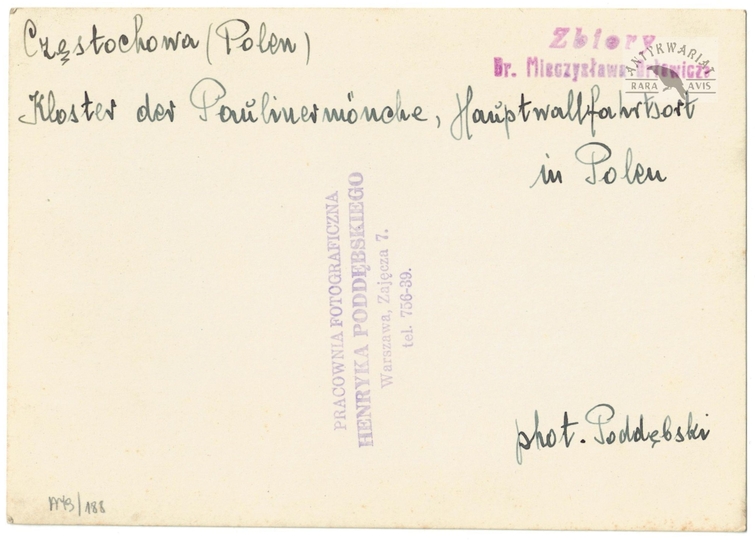 Częstochowa (Polen)
Zbiory
Dr. Mieczysława Orłowicza
ANTYKWARIAT
RARA AVIS
Kloster der Paulinermönche, Hauptwallfahrtsort
in Polen
PRACOWNIA FOTOGRAFICZNA
HENRYKA PODDĘBSKIEGO
Warszawa, Zajęcza 7.
tel. 756-39.
phot. Poddębski
/188